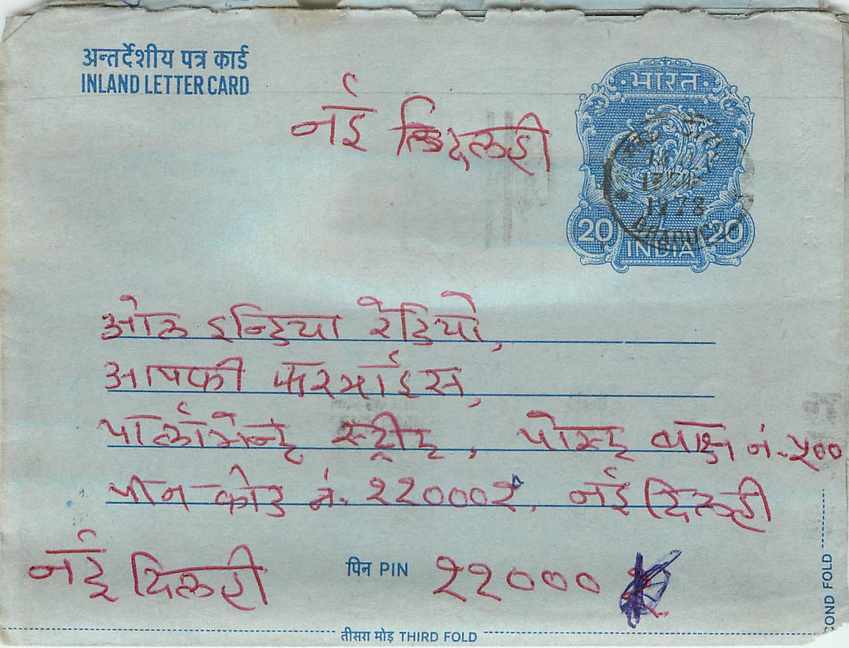 अन्तर्देशीय पत्र कार्ड
INLAND LETTER CARD
भारत
1978
20 INDIA 20
नई दिल्ही
ओल इन्डिया रेडियो,
आपकी फरमाईस,
पार्लामेन्ट स्ट्रीट, पोस्ट बाक्ष नं. ५००
पीन कोड नं. ११०००१, नई दिल्ही
नई दिल्ही पिन PIN ११०००
तीसरा मोड़ THIRD FOLD
COND FOLD